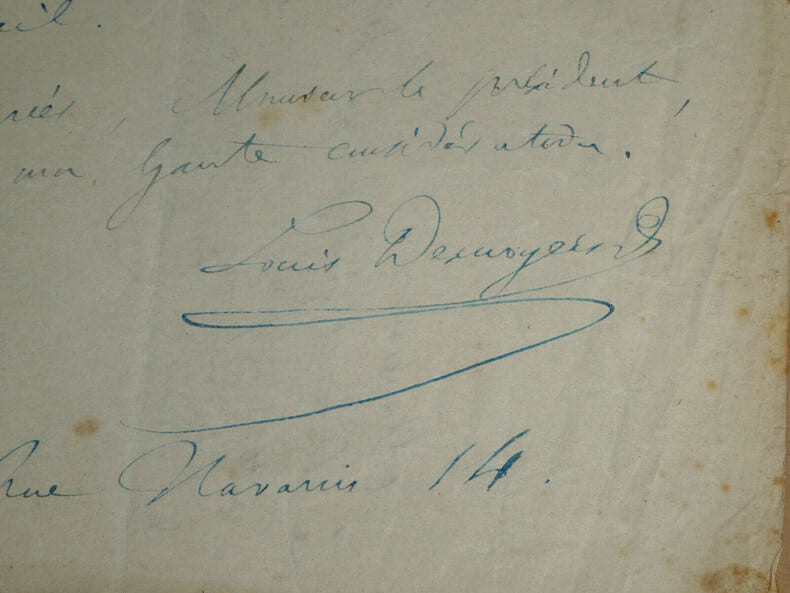 eil.
réer, Monsieur le président,
ma haute considération.
Louis Desnoyers
Rue Navarin 14.